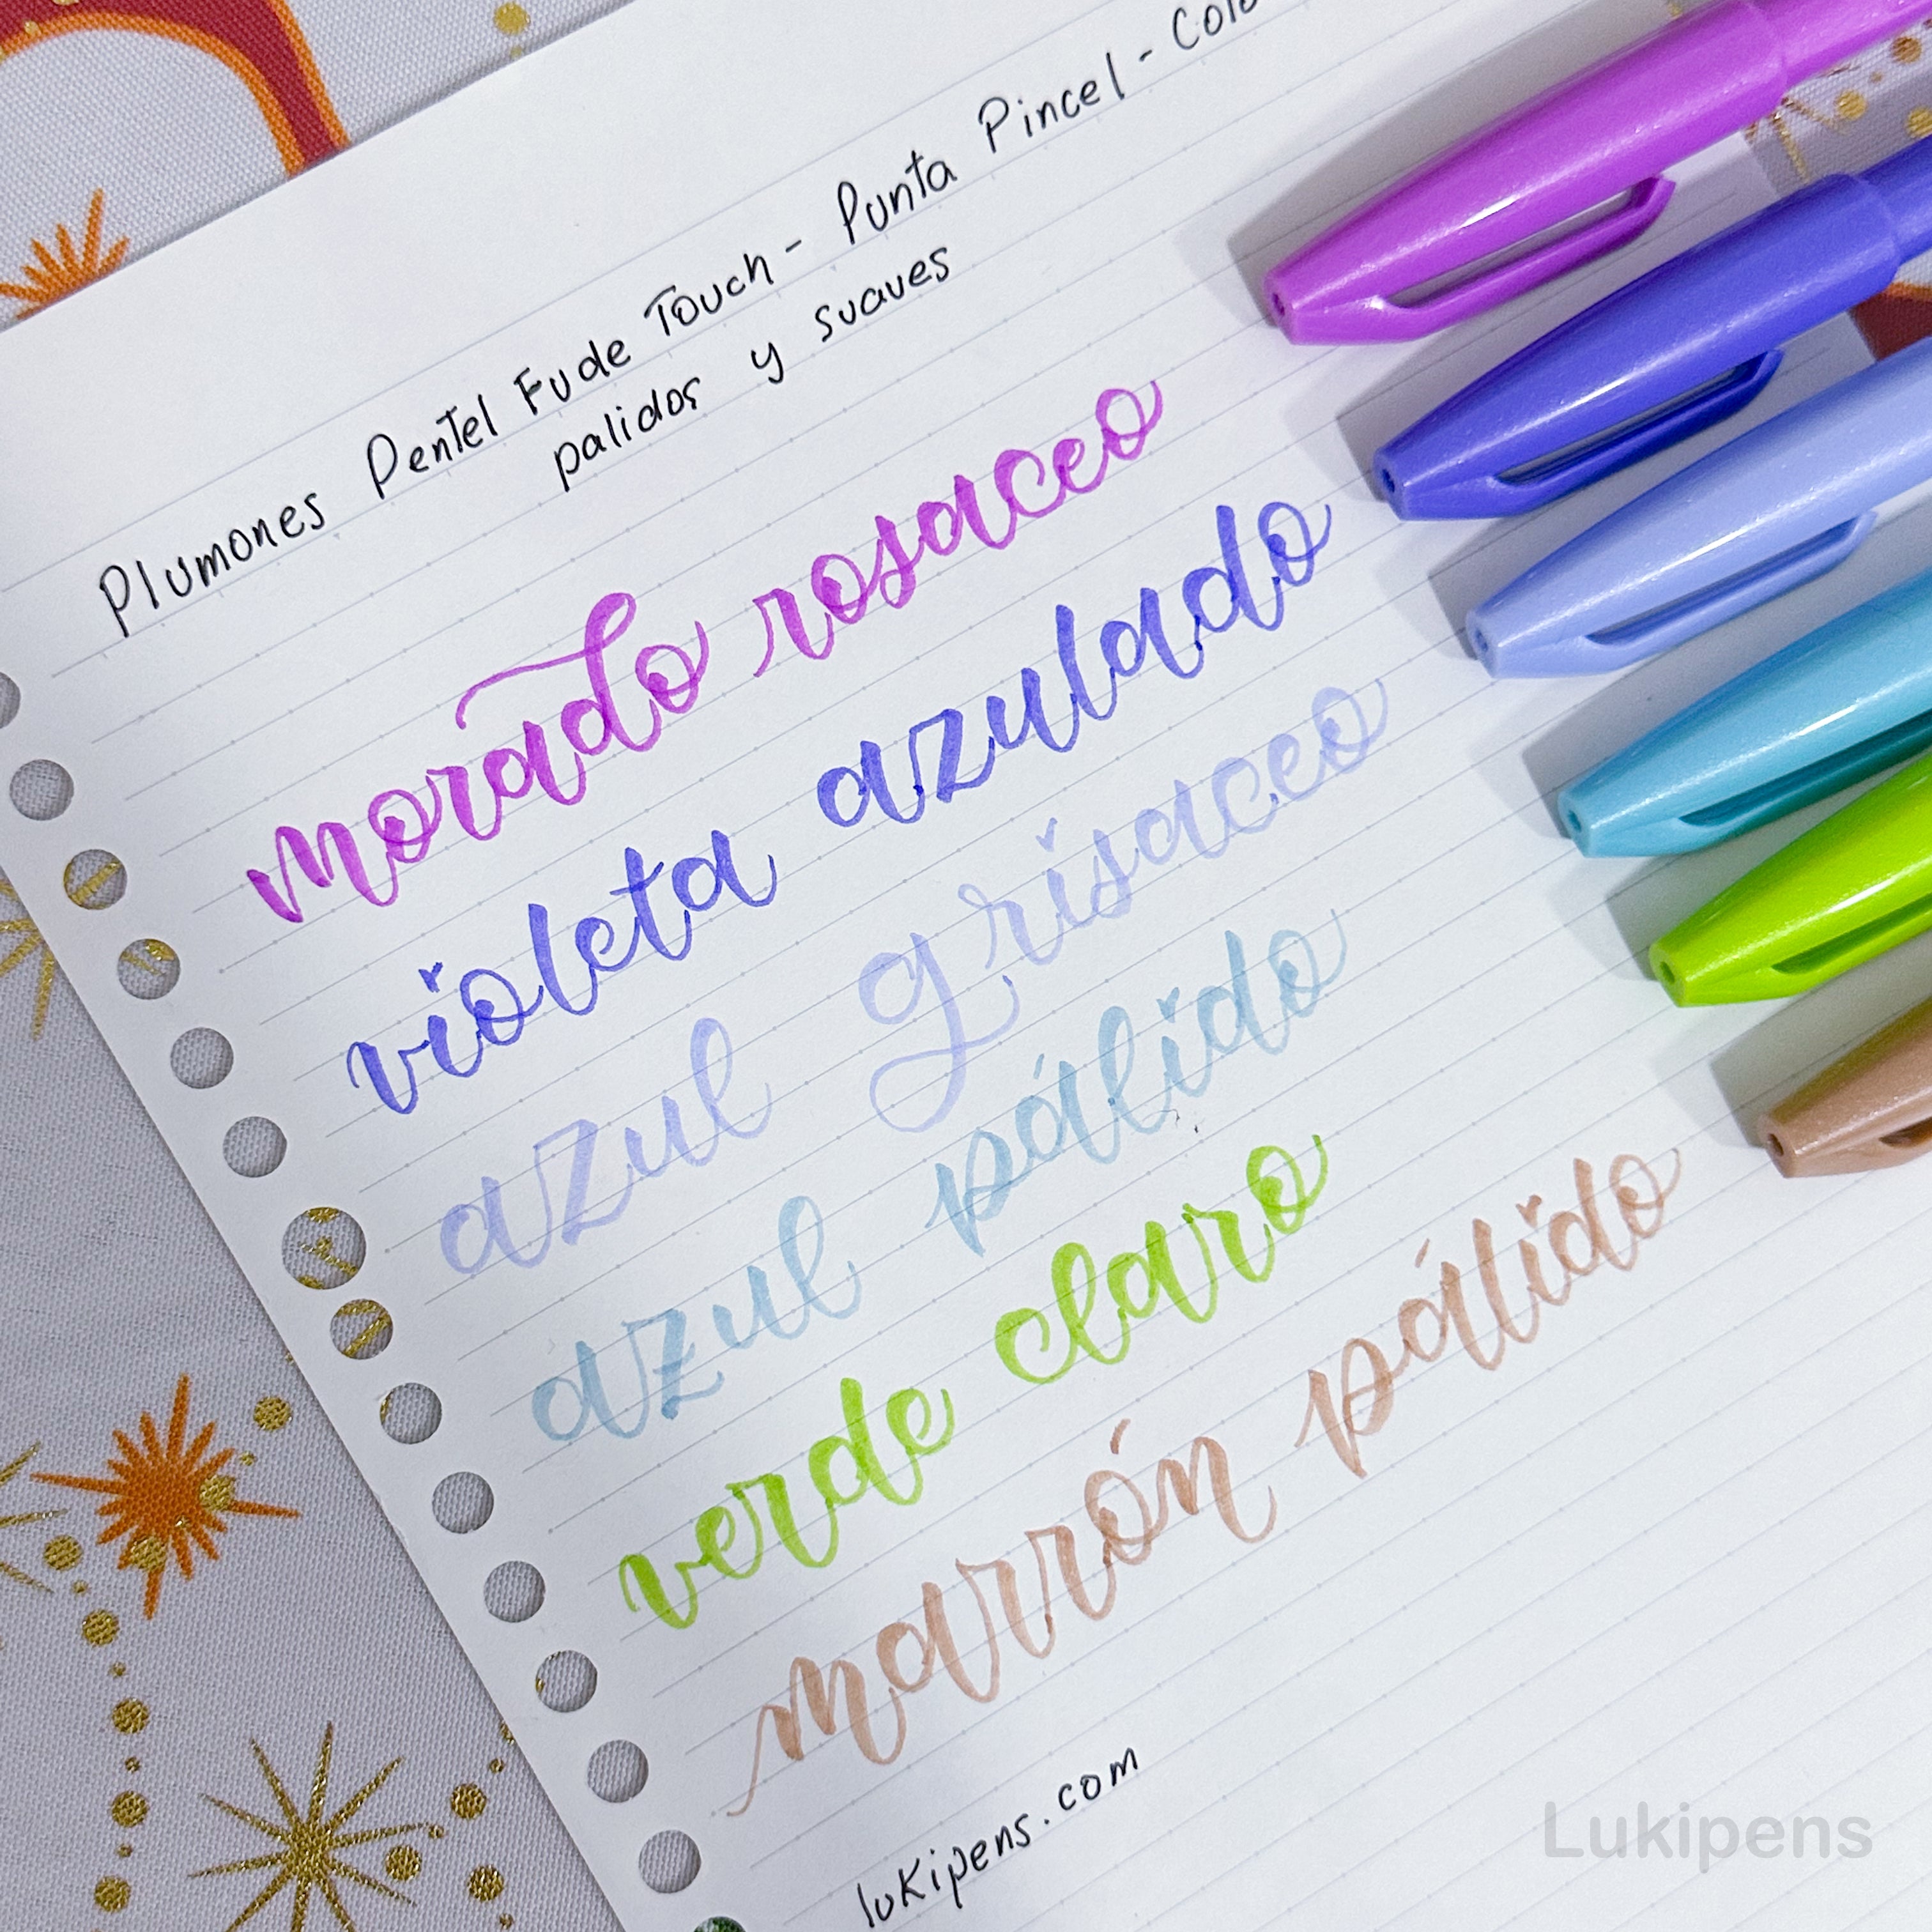 Plumones Pentel Fude Touch - Punta Pincel -
palidos y suaves
morado rosaceo
violeta azulado
azul grisaceo
azul pálido
verde claro
marrón pálido
lukipens.com
Lukipens